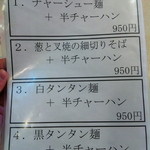 1．チャーシュー麺
＋ 半チャーハン
950円
2．葱と叉焼の細切りそば
＋ 半チャーハン
950円
3．白タンタン麺
＋ 半チャーハン
950円
4．黒タンタン麺
＋ 半チャーハン